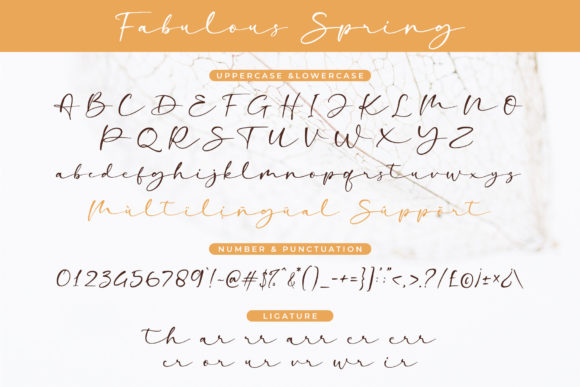 Fabulous Spring
UPPERCASE &LOWERCASE
A B C D E F G H I J K L M N O
P Q R S T U V W X Y Z
abcdefghijklmnopqrstuvwxyz
Mùltilíñgüäl Süppört
NUMBER & PUNCTUATION
0123456789'!~@#$%^&*()_-+={}[]:;"<,>.?/£©¡±×¿\
LIGATURE
th ar rr arr er err
cr or ur vr wr ir